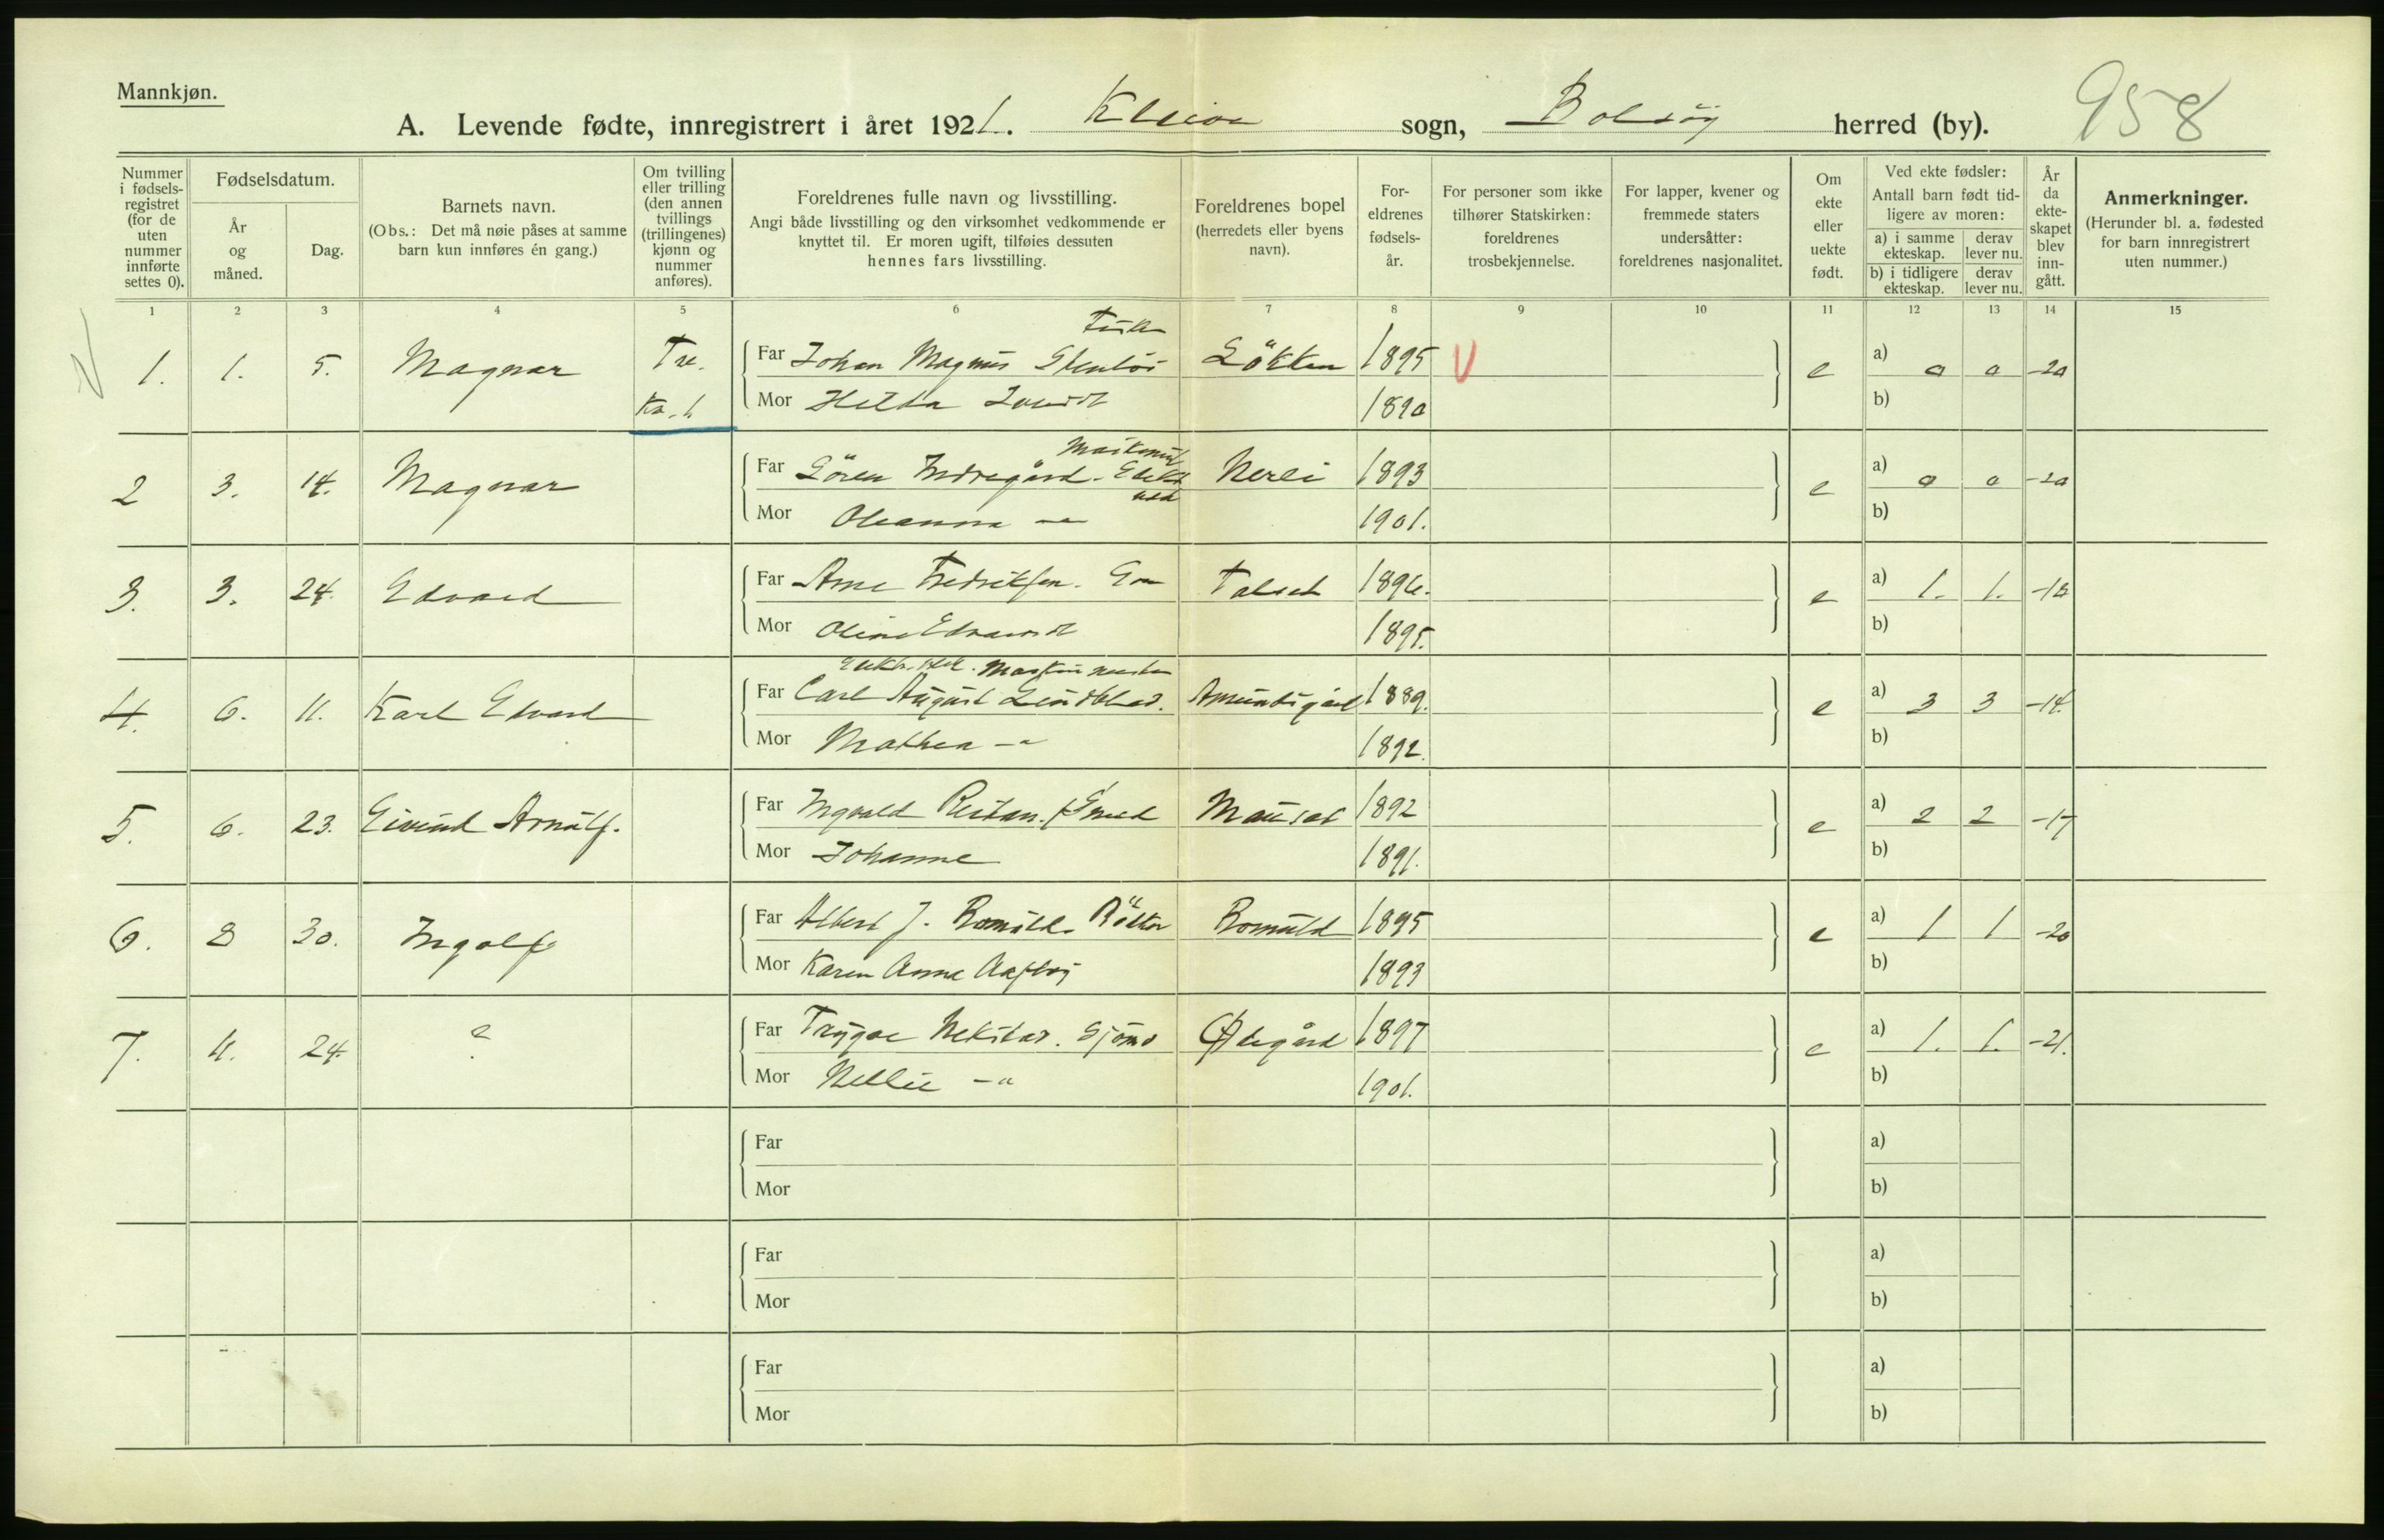 Mannkjøn.
A. Levende fødte, innregistrert i året 1921. Kleive sogn, Bolsöy herred (by). 958
Nummer i fødsels-registret (for de uten nummer innførte settes 0).
Fødselsdatum.
År og måned.
Dag.
Barnets navn.
(Obs.: Det må nøie påses at samme barn kun innføres én gang.)
Om tvilling eller trilling (den annen tvillings (trillingenes) kjønn og nummer anføres).
Foreldrenes fulle navn og livsstilling.
Angi både livsstilling og den virksomhet vedkommende er knyttet til. Er moren ugift, tilføies dessuten hennes fars livsstilling.
Foreldrenes bopel (herredets eller byens navn).
For-eldrenes fødsels-år.
For personer som ikke tilhører Statskirken: foreldrenes trosbekjennelse.
For lapper, kvener og fremmede staters undersåtter: foreldrenes nasjonalitet.
Om ekte eller uekte født.
Ved ekte fødsler:
Antall barn født tid-ligere av moren:
a) i samme ekteskap. derav lever nu.
b) i tidligere ekteskap. derav lever nu.
År da ekte-skapet blev inn-gått.
Anmerkninger.
(Herunder bl. a. fødested for barn innregistrert uten nummer.)
1 2 3 4 5 6 7 8 9 10 11 12 13 14 15
1. 1. 5. Magnar Far Johan Magnus Lökken 1895 V e a) 0 0 -20
Mor Hilda 1890 b)
2 3. 14. Magnar Far Sören Indregård Nerli 1893 e a) 0 0 -20
Mor Oleanna -"- 1901. b)
3. 3. 24. Edvard Far Arne Fredriksen. Talset 1896. e a) 1. 1. -18
Mor Oline Edvardsdt 1895. b)
4. 6. 11. Karl Edvard Far Carl August Lindblad. Amundsgård 1889. e a) 3 3 -14.
Mor Mathea -"- 1892. b)
5. 6. 23. Eivind Arnulf. Far Ingvald Smed Mauset 1892 e a) 2 2 -17
Mor Johanne 1891. b)
6. 8 30. Ingolf Far Albert J. Romuld. Romuld 1895 e a) 1 1 -20
Mor Karen Anna 1893 b)
7. 11. 24. ? Far Trygve Sjömd Ödegård 1897 e a) 1. 1. -21.
Mor Nellie -"- 1901. b)
Far a)
Mor b)
Far a)
Mor b)
Far a)
Mor b)